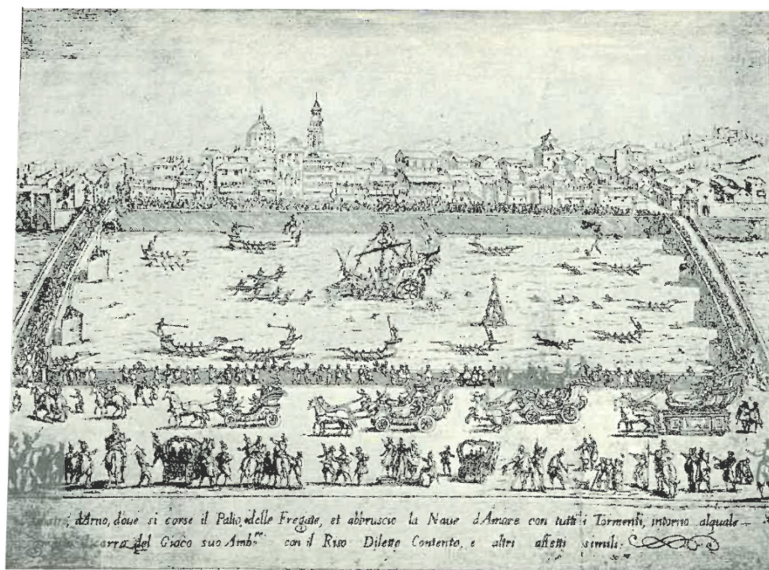 d'Arno, doue si corse il Palio delle Fregate, et abbruscio la Naue d'Amore con tutti i Tormenti, intorno alquale
carra del Gioco suo Amb.re con il Riso Diletto Contento, e altri affetti simili.